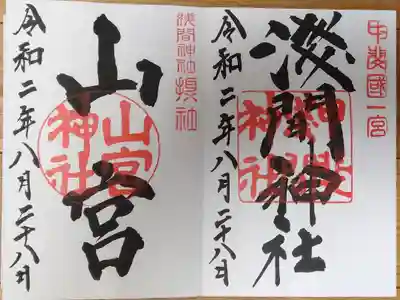 甲斐國一宮
浅間神社
令和二年八月二十八日
浅間神社摂社
山宮
山宮神社
令和二年八月二十八日